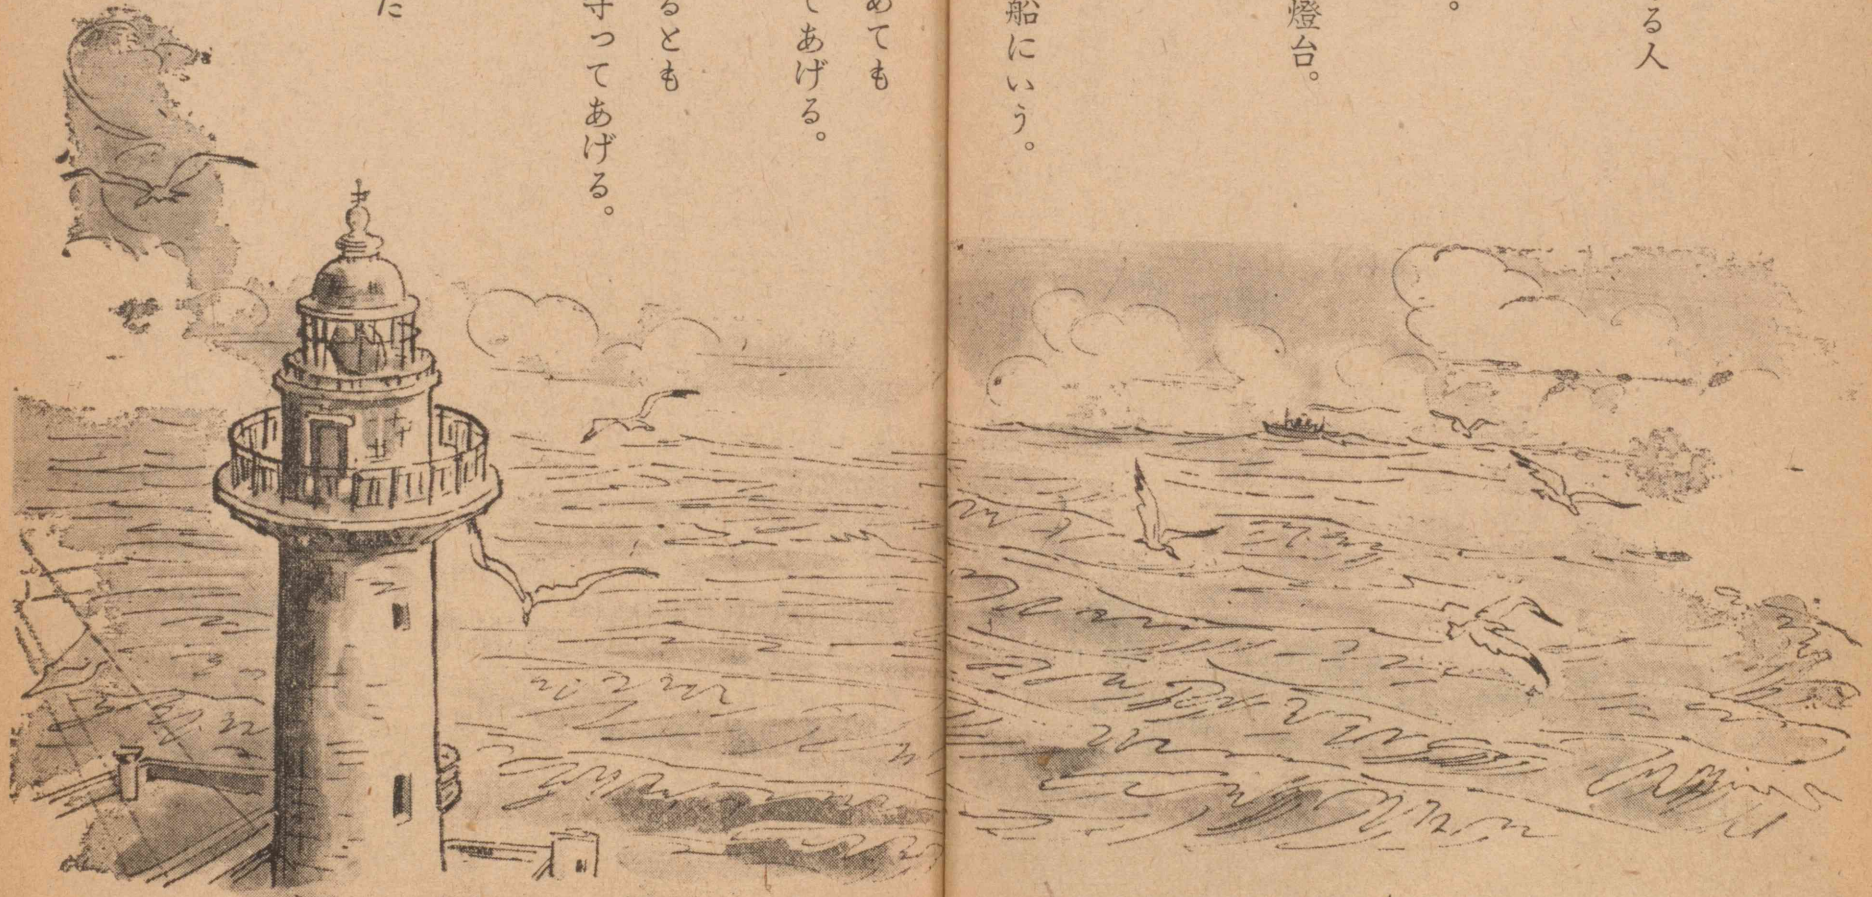 る人
。
燈台。
船にいう。
めても
てあげる。
るとも
守ってあげる。
た